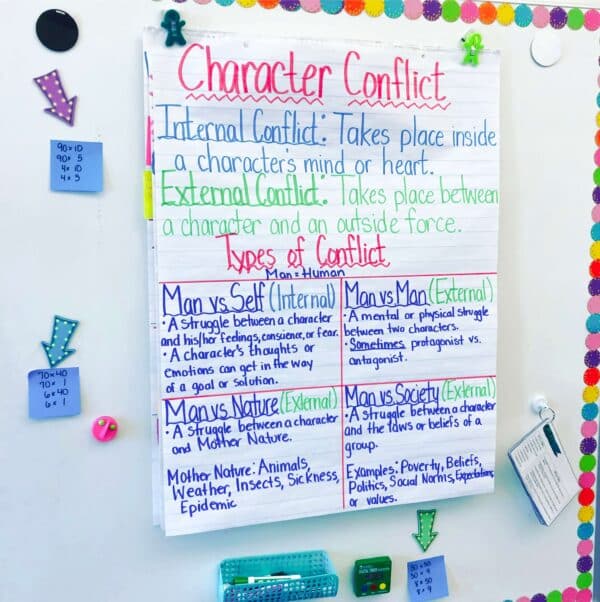 Character Conflict
Internal Conflict: Takes place inside
a character's mind or heart.
External Conflict: Takes place between
a character and an outside force.
Types of Conflict
Man = Human
Man vs. Self (Internal)
• A struggle between a character
and his/her feelings, conscience, or fear.
• A character's thoughts or
emotions can get in the way
of a goal or solution.
Man vs. Man (External)
• A mental or physical struggle
between two characters.
• Sometimes protagonist vs.
antagonist.
Man vs. Nature (External)
• A struggle between a character
and Mother Nature.
Mother Nature: Animals,
Weather, Insects, Sickness,
Epidemic
Man vs. Society (External)
• A struggle between a character
and the laws or beliefs of a
group.
Examples: Poverty, Beliefs,
Politics, Social Norms, Expectations,
or values.
90 x 10
90 x 5
4 x 10
4 x 5
70 x 40
70 x 1
6 x 40
6 x 1
50 x 9
8 x 50
8 x 9